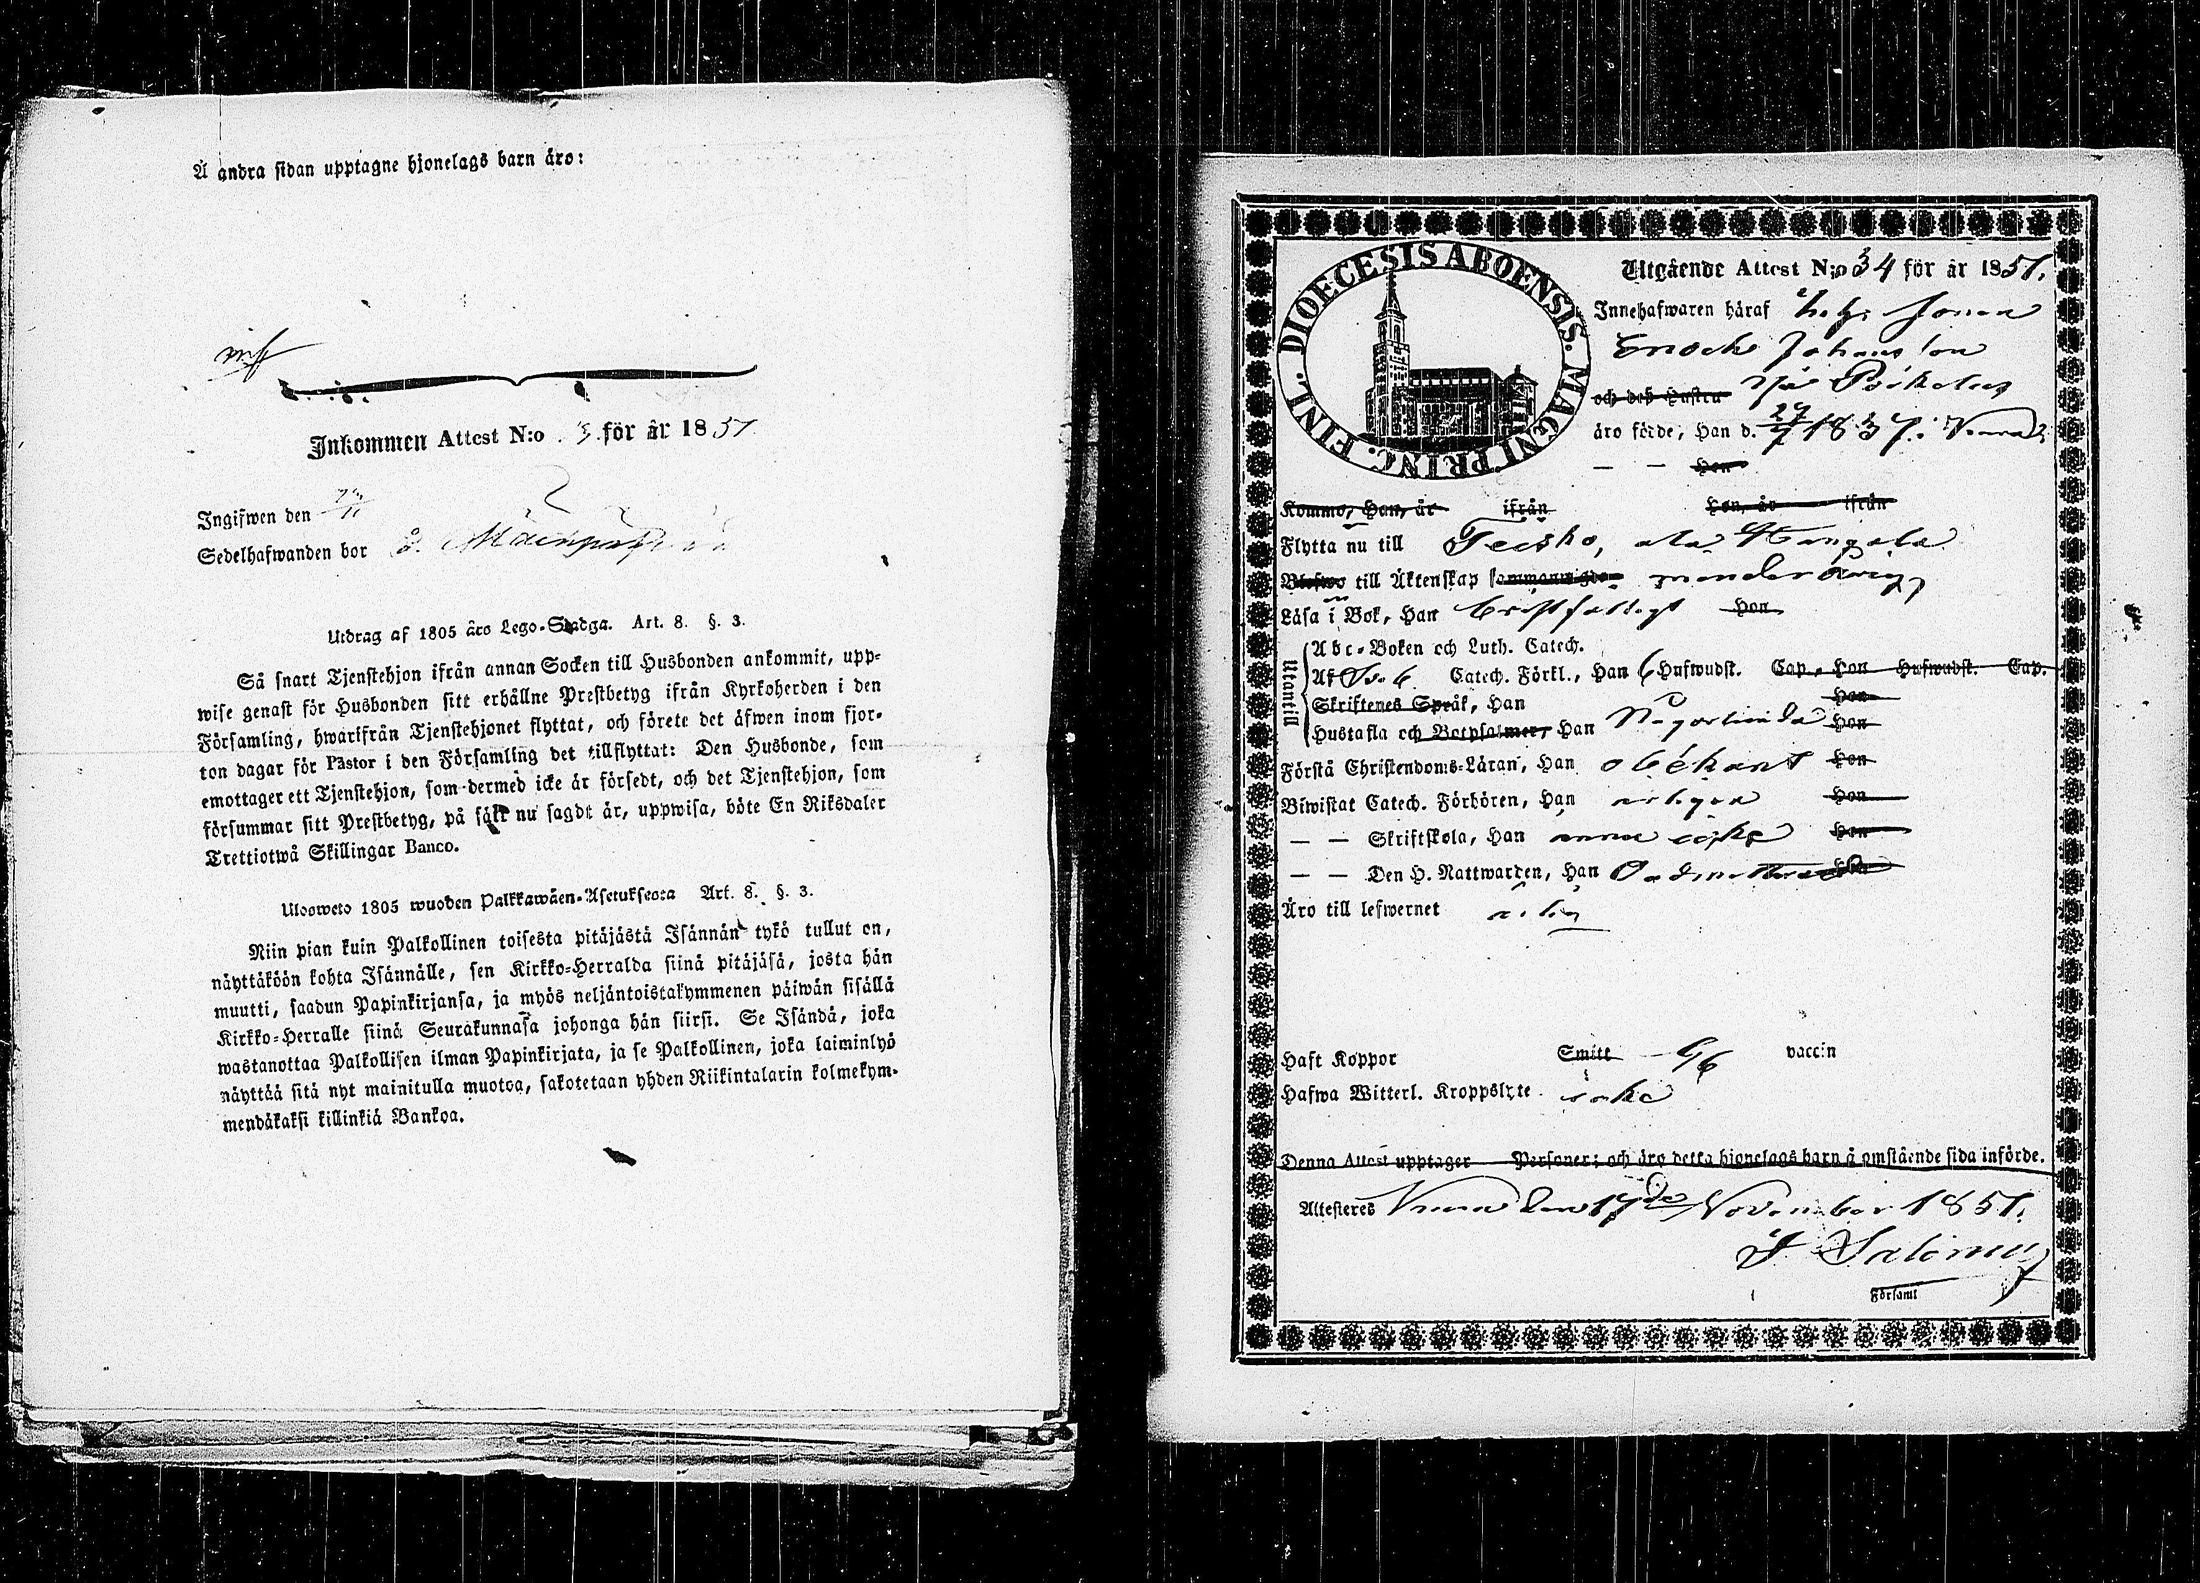 Å andra sidan upptagne hjonelags barn äro:
Inkommen Attest N:o 3 för år 1851
Ingifwen den
Sedelhafwanden bor
Utdrag af 1805 års Lego-Stadga. Art. 8. §. 3.
Så snart Tjenstehjon ifrån annan Socken till Husbonden ankommit, upp-
wise genast för Husbonden sitt erhållne Prestbetyg ifrån Kyrkoherden i den
Församling, hwarifrån Tjenstehjonet flyttat, och förete det äfwen inom fjor-
ton dagar för Pastor i den Församling det tillflyttat: Den Husbonde, som
emottager ett Tjenstehjon, som dermed icke är försedt, och det Tjenstehjon, som
försummar sitt Prestbetyg, på sätt nu sagdt är, uppwisa, böte En Riksdaler
Trettiotwå Skillingar Banco.
Ulosweto 1805 wuoden Palkkawäen-Asetuksesta Art. 8. §. 3.
Niin pian kuin Palkollinen toisesta pitäjästä Isännän tykö tullut on,
näyttäköön kohta Isännälle, sen Kirkko-Herralda siinä pitäjäsä, josta hän
muutti, saadun Papinkirjansa, ja myös neljäntoistakymmenen päiwän sisällä
Kirkko-Herralle siinä Seurakunnasa johonga hän siirsi. Se Isändä, joka
wastanottaa Palkollisen ilman Papinkirjata, ja se Palkollinen, joka laiminlyö
näyttää sitä nyt mainitulla muotoa, sakotetaan yhden Riikintalarin kolmekym-
mendäkaksi killinkiä Bankoa.
DIOECESIS ABOENSIS. MAGNI PRINC. FINL.
Utgående Attest N:o 34 för år 1851.
Innehafwaren häraf Jonas
Enoch Johansson
och deß Hustru
äro födde, Han d. 1837.
— — Hon
Kommo, Han, år ifrån Hon, år ifrån
Flytta nu till Teisko,
Blefwo till Äktenskap sammanwigde minderårig,
Läsa i Bok, Han bristfälligt Hon
Utantill
Abc-Boken och Luth. Catech.
Catech. Förkl., Han 6 Hufwudst. Cap., Hon Hufwudst. Cap.
Skriftenes Språk, Han Hon
Hustafla och Botpsalmer, Han Någorlunda Hon
Förstå Christendoms-Läran, Han obekant Hon
Biwistat Catech. Förhören, Han Hon
— — Skriftskola, Han ännu icke Hon
— — Den H. Nattwarden, Han Oadmitterad Hon
Äro till lefwernet
Haft Koppor Smitt vaccin
Hafwa Witterl. Kroppslyte icke
Denna Attest upptager Personer; och äro detta hjonelags barn å omstående sida införde.
Attesteras den 17de November 1851.
Församl